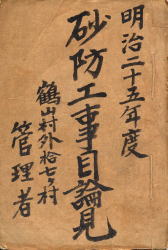 明治二十五年度
砂防工事目論見
鶴山村外拾七ケ村
管理者